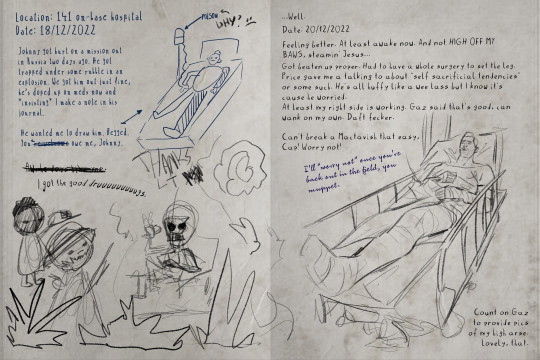 Location: 141 on-base hospital
Date: 18/12/2022
Johnny got hurt on a mission out
in Russia two days ago. He got
trapped under some rubble in an
explosion. We got him out just fine,
he's dosed up on meds now and
"insisting" I make a note in his
journal.
He wanted me to draw him. Begged.
You owe me, Johnny.
WHY?
THANKS
I got the good druuuuuuuugs.
...Well.
Date: 20/12/2022
Feeling better. At least awake now. And not HIGH OFF MY
BAWS, steamin' Jesus...
Got beaten up proper. Had to have a whole surgery to set the leg.
Price gave me a talking to about 'self sacrificial tendencies'
or some such. He's all huffy like a wee lass but I know it's
cause he worried.
At least my right side is working. Gaz said that's good, can
wank on my own. Daft fecker.
Can't break a Mactavish that easy,
Cap! Worry not!
I'll "worry not" once you're
back out in the field, you
muppet.
Count on Gaz
to provide pics
of my high arse.
Lovely, that.